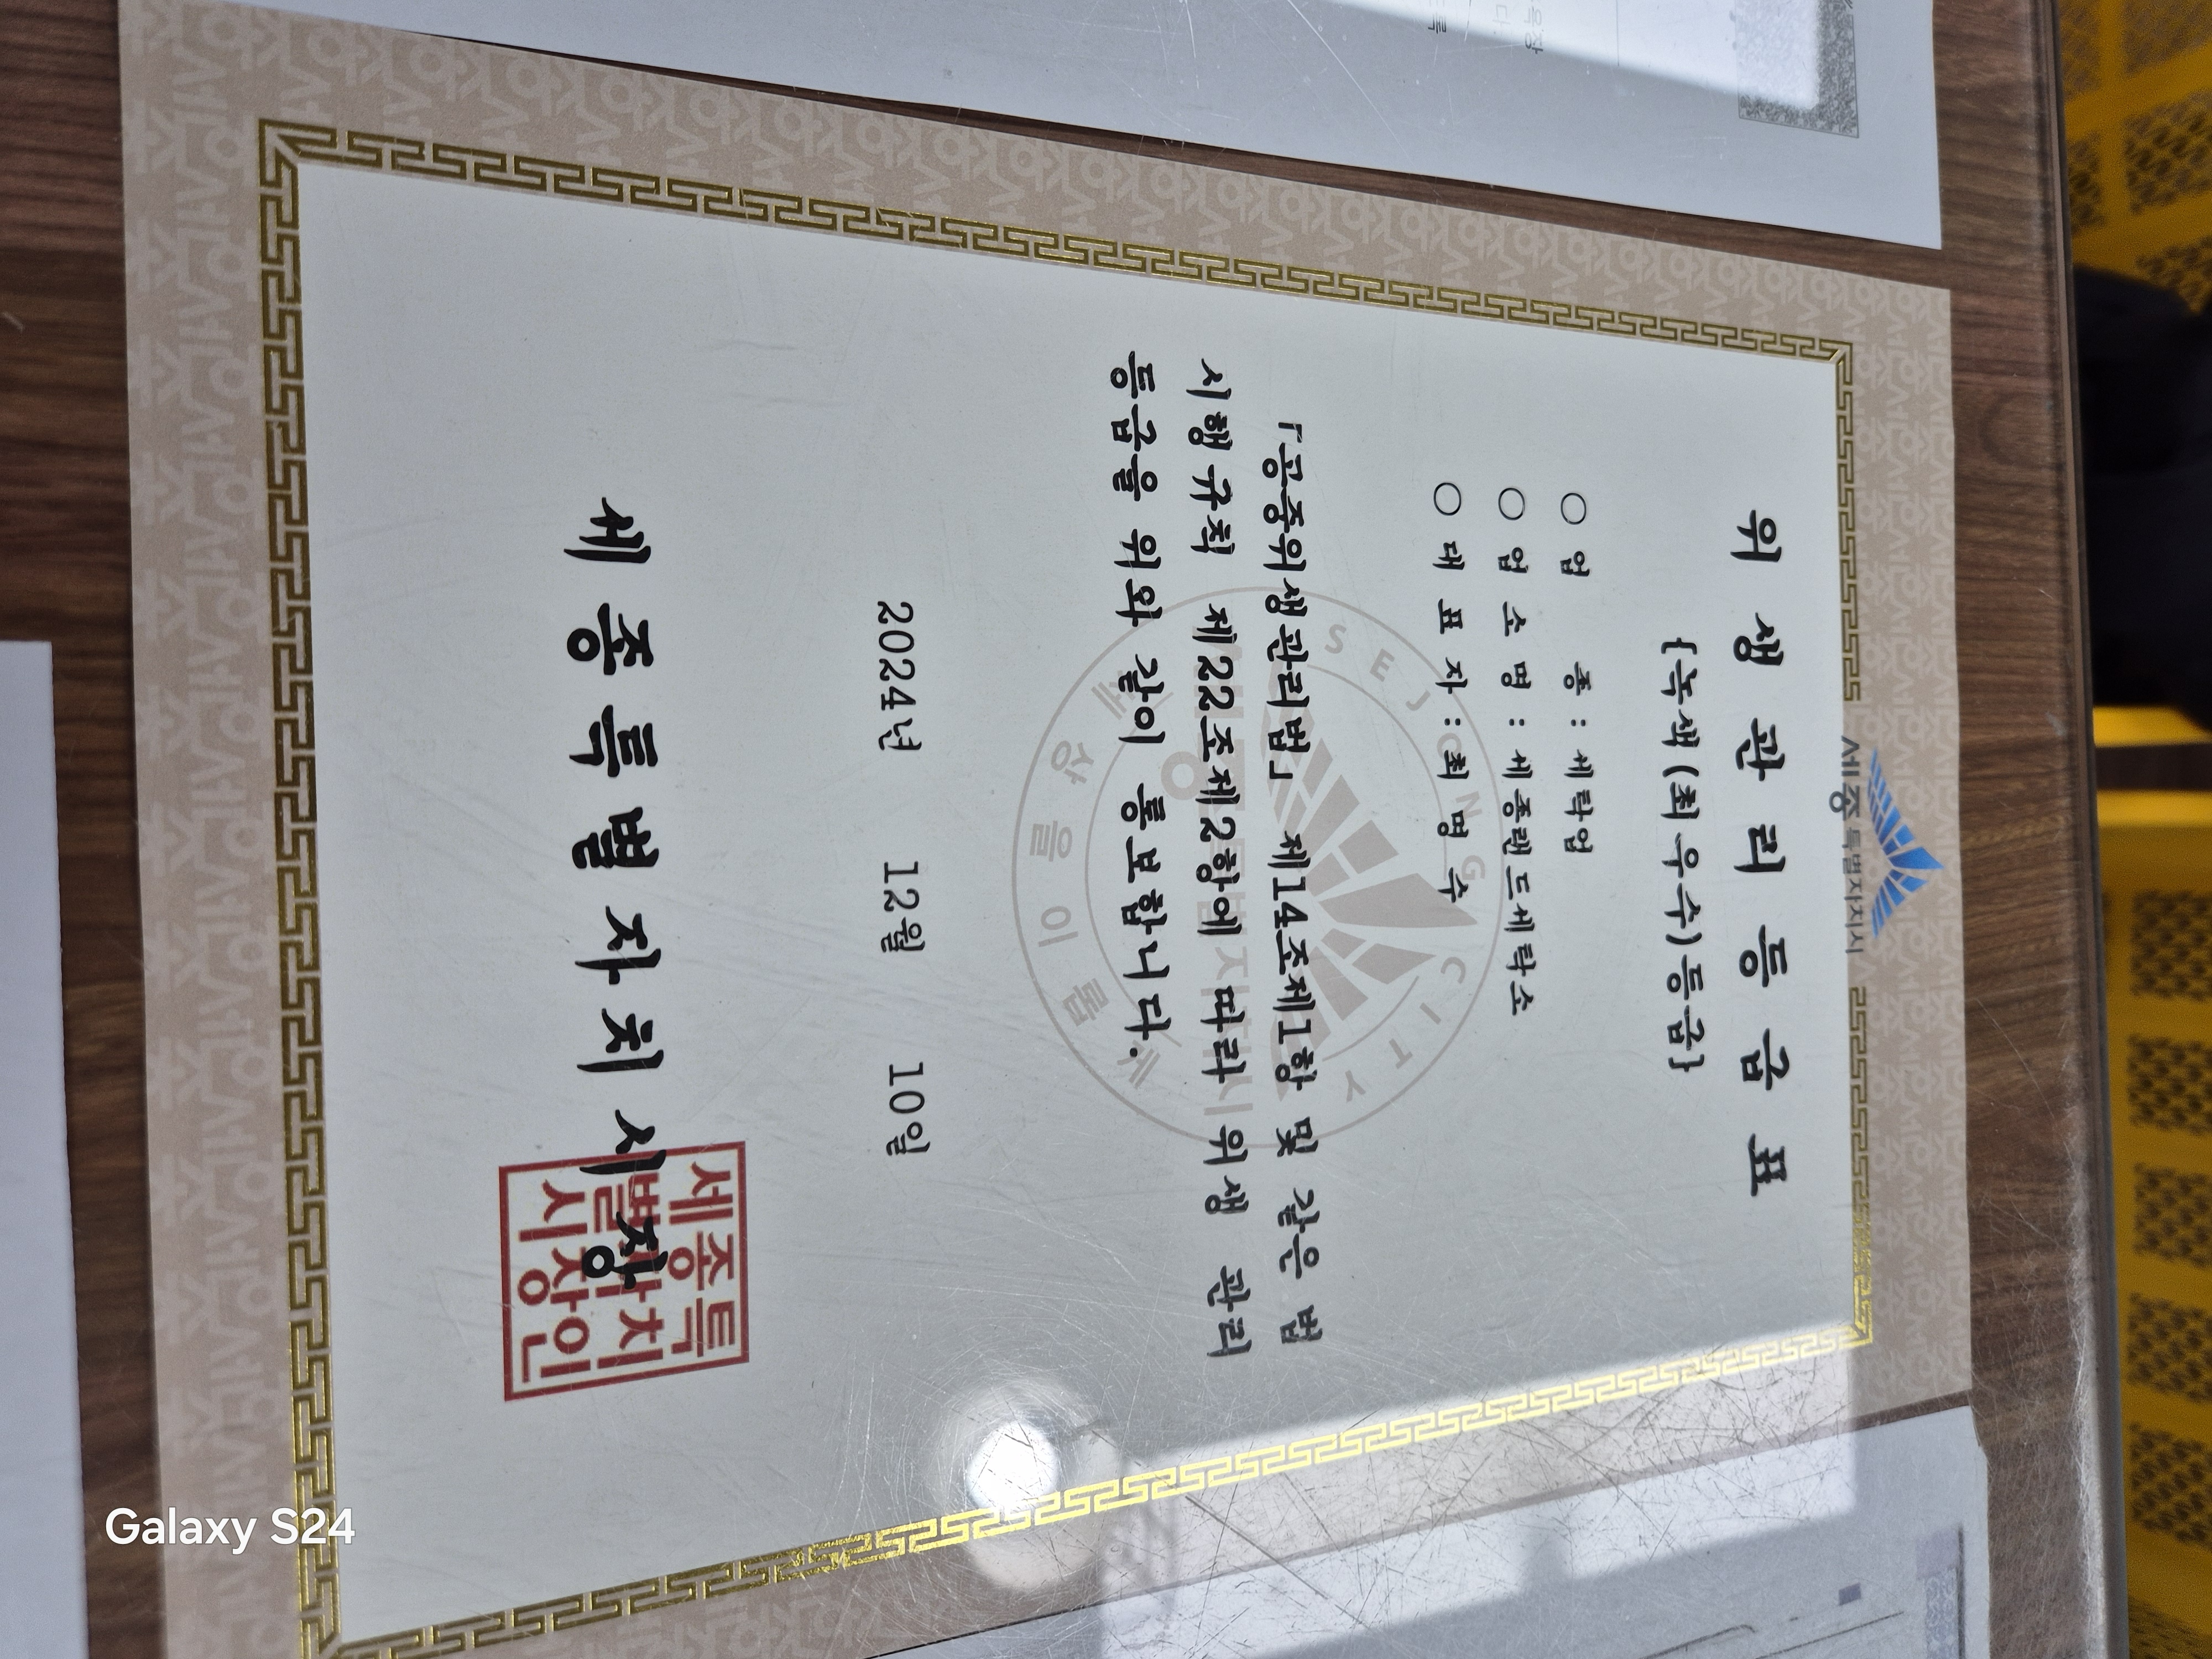 세종특별자치시
위 생 관 리 등 급 표
{녹색(최우수)등급}
○ 업 종 : 세탁업
○ 업 소 명 : 세종랜드세탁소
○ 대 표 자 : 최 명 수
「공중위생관리법」 제14조제1항 및 같은 법
시행규칙 제22조제2항에 따라 위생 관리
등급을 위와 같이 통보합니다.
SEJONG CITY
세상을 이롭게
세종특별자치시
2024년 12월 10일
세종특별자치시장
세종특
별자치
시장인
Galaxy S24